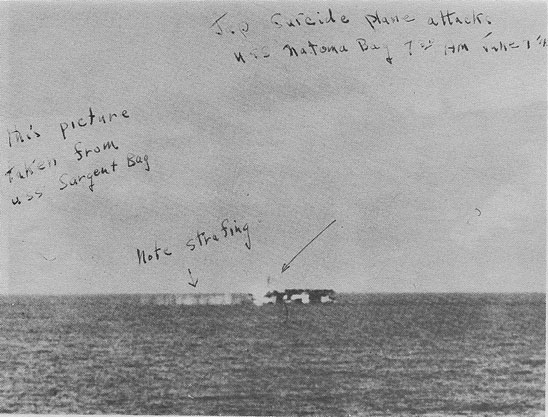 Jap Suicide plane attack.
uss Natoma Bay 7 AM June 7
This picture
Taken from
uss Sargent Bay
Note strafing